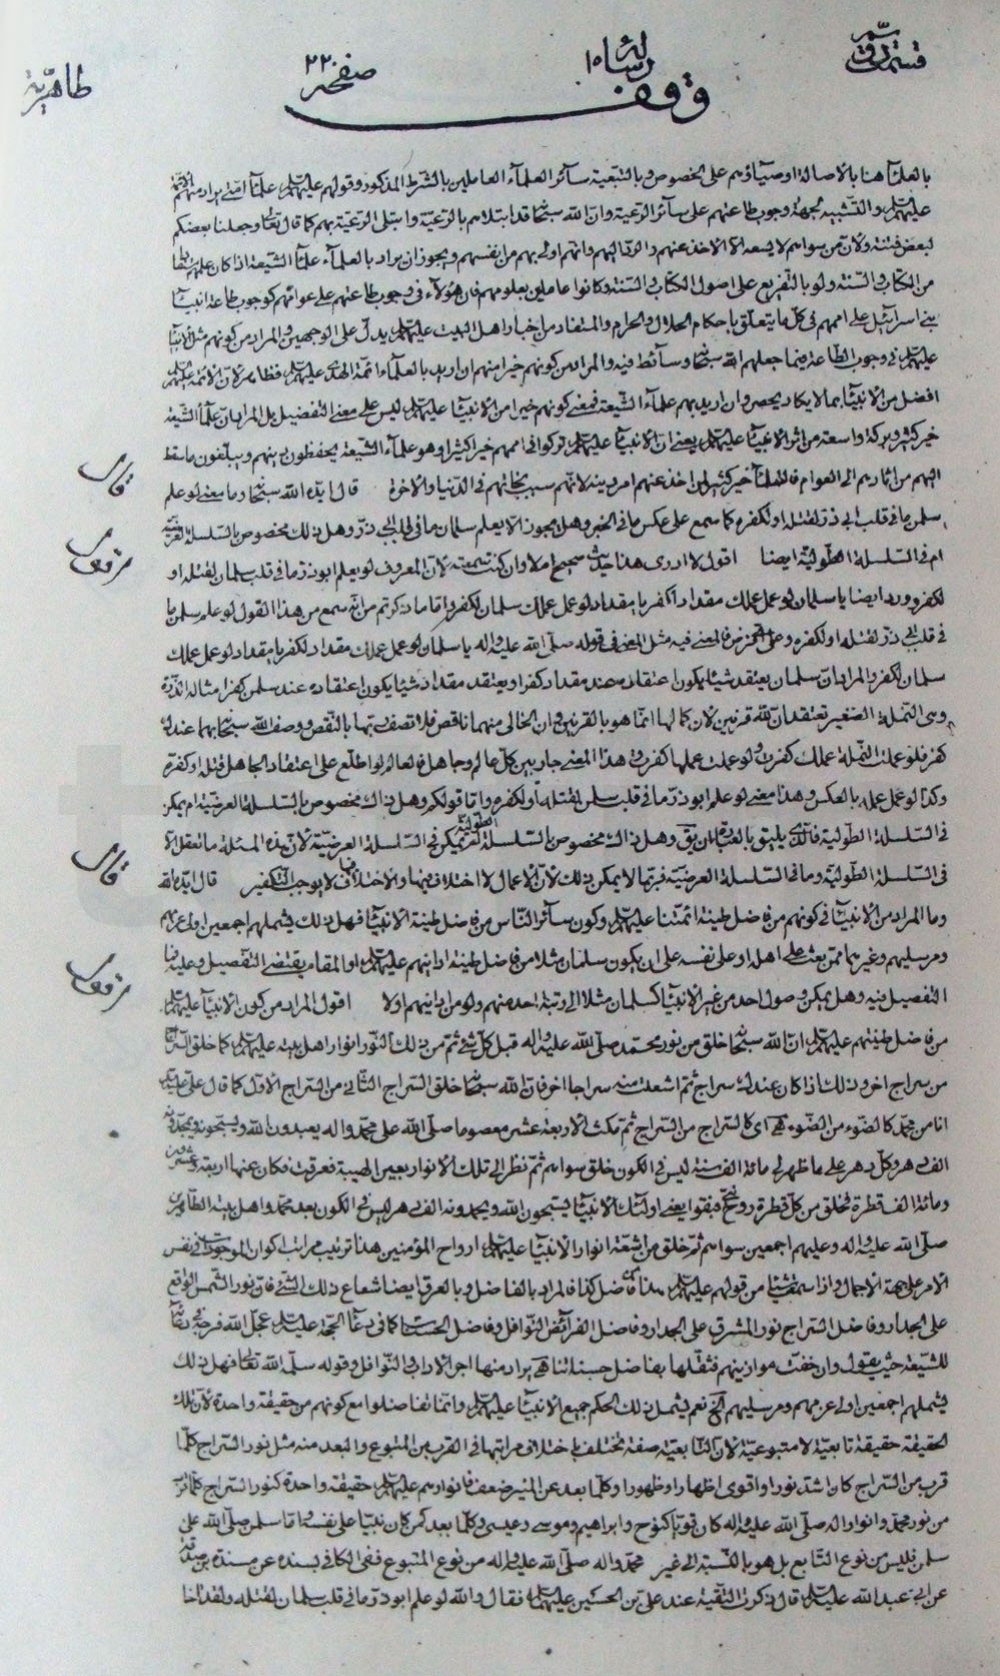 قسم دوم
رساله ١٥
صفحه ٢٢
طاهرية
وقف
بالعلمآء هنا بالاصالة اوصيآؤهم على الخصوص وبالتبعية سآئر العلمآء العاملين بالشرط المذكور وقولهم عليهم السلام علمآء امتي يراد منهم الائمة
عليهم السلام والتشبيه بجهة وجوب طاعتهم على سآئر الرعية وان الله سبحانه قد ابتلاهم بالرعية وابتلى الرعية بهم كما قال تعالى وجعلنا بعضكم
لبعض فتنة ولان من سواهم لا يسعه الا الاخذ عنهم والرد اليهم وانهم اولى بهم من انفسهم ويجوز ان يراد بالعلمآء علمآء الشيعة اذا كان علمهم
من الكتاب والسنة ولو بالتفريع على اصول الكتاب والسنة وكانوا عاملين بعلومهم فان هؤلاء في وجوب طاعتهم على عوامهم كوجوب طاعة انبيآء
بني اسرآئيل على اممهم في كل ما يتعلق باحكام الحلال والحرام والمستفاد من اخبار اهل البيت عليهم السلام يدل على الوجهين والمراد من كونهم مثل الانبيآء
عليهم السلام في وجوب الطاعة فيما جعلهم الله سبحانه وسآئط فيه والمراد من كونهم خيرا منهم ان اريد بالعلمآء ائمة الهدى عليهم السلام فظاهر لان الائمة عليهم السلام
افضل من الانبيآء بما لا يكاد يحصى وان اريد بهم علمآء الشيعة فمعنى كونهم خيرا من الانبيآء عليهم السلام ليس على معنى التفضيل بل المراد ان علمآء الشيعة
خير كثير وبركة واسعة من اثر الانبيآء عليهم السلام يعني ان الانبيآء عليهم السلام تركوا في اممهم خيرا كثيرا وهو علمآء الشيعة يحفظون دينهم ويبلغون ما سقط
اليهم من اثارهم الى العوام فالعلمآء خير كثير لمن اخذ عنهم امر دينه لانهم سبب نجاتهم في الدنيا والاخرة قال ايده الله سبحانه وما معنى لو علم
سلمن ما في قلب ابي ذر لقتله او لكفره كما سمع على عكس ما في الخبر وهل يجوز الا يعلم سلمان ما في قلب ابي ذر وهل ذلك مخصوص بالسلسلة العرضية
ام في السلسلة الطولية ايضا اقول لا ادري هذا حديث صحيح ام لا وان كنت سمعته لان المعروف لو يعلم ابوذر ما في قلب سلمان لقتله او
لكفره وورد ايضا يا سلمان لو عمل عملك مقداد لكفر يا مقداد لو عمل عملك سلمان لكفر واما ما ذكرتم من انه سمع من هذا القول لو علم سلمن ما
في قلب ابي ذر لقتله او لكفره وعلى الفرض فالمعنى فيه مثل المعنى في قوله صلى الله عليه واله يا سلمان لو عمل عملك مقداد لكفر يا مقداد لو عمل عملك
سلمان لكفر والمراد ان سلمان يعتقد شيئا يكون اعتقاده عند مقداد كفرا ويعتقد مقداد شيئا يكون اعتقاده عند سلمن كفرا مثاله الذرة
وهي النملة الصغير تعتقد ان لله قرنين لان كمالها انما هو بالقرنين وان الخالي منهما ناقص فلا تصف ربها بالنقص ووصف الله سبحانه بهما عندك
كفر فلو عملت النملة عملك كفرت ولو عملت عملها كفرت وهذا المعنى جار بين كل عالم وجاهل فالعالم لو اطلع على اعتقاد الجاهل قتله او كفره
وكذا لو عمل عمله بالعكس وهذا معنى لو علم ابوذر ما في قلب سلمن لقتله او لكفره واما قولكم وهل ذلك مخصوص بالسلسلة العرضية ام يمكن
في السلسلة الطولية فالذي يليق بالعبارة ان يق وهل ذلك مخصوص بالسلسلة الطولية ام يمكن في السلسلة العرضية لان هذه المسئلة ما تعقل الا
في السلسلة الطولية وما في السلسلة العرضية فربما لا يمكن ذلك لان الاعمال لا اختلاف فيها والاختلاف لا يوجب التكفير قال ايده الله
وما المراد من الانبيآء في كونهم من فاضل طينة ائمتنا عليهم السلام وكون سآئر الناس من فاضل طينة الانبيآء فهل ذلك يشملهم اجمعين اولي عزمهم
ومرسليهم وغيرهما ممن بعث على اهله او على نفسه على ان يكون سلمان مثلا من فاضل طينة ادانيهم عليهم السلام او المقام يقتضي التفصيل وعليه فما
التفصيل فيه وهل يمكن وصول احد من غير الانبيآء كسلمان مثلا الى رتبة احد منهم ولو من ادانيهم او لا اقول المراد من كون الانبيآء عليهم السلام
من فاضل طينتهم عليهم السلام ان الله سبحانه خلق من نور محمد صلى الله عليه واله قبل كل شيء ثم من ذلك النور انوار اهل بيته عليهم السلام كما خلق السراج
من سراج اخر وذلك اذا كان عندك سراج ثم اشعلت منه سراجا اخر فان الله سبحانه خلق السراج الثاني من السراج الاول كما قال علي عليه السلام
انا من محمد كالضوء من الضوء اي كالسراج من السراج ثم مكث الاربعة عشر معصوما صلى الله على محمد واله يعبدون الله ويسبحونه ويحمدونه
الف دهر وكل دهر على ما ظهر لي مائة الف سنة ليس في الكون خلق سواهم ثم نظر الى تلك الانوار بعين الهيبة فعرقت فكان عنها اربعة وعشرون
ومائة الف قطرة فخلق من كل قطرة روح نبي فبقوا يعني اولئك الانبيآء يسبحون الله ويحمدونه الف دهر ليس في الكون بعد محمد واهل بيته الطاهرين
صلى الله عليه واله وعليهم اجمعين سواهم ثم خلق من اشعة انوار الانبيآء عليهم السلام ارواح المؤمنين هذا ترتيب مراتب اكوان الموجودات في نفس
الامر على جهة الاجمال واذا سمعت شيئا من قولهم عليهم السلام هذا من فاضل كذا فالمراد بالفاضل وبالعرق ايضا شعاع ذلك الشيء فان نور الشمس الواقع
على الجدار وفاضل السراج نور المشرق على الجدار وفاضل الفرآئض النوافل وفاضل الحسنات كما في دعآء الحجة عليه السلام عجل الله فرجه في دعآئه
للشيعة حيث يقول وان خفت موازينهم فثقلها بفاضل حسناتنا يراد منها اجر الاداب والنوافل وقوله سلمه الله تعالى فهل ذلك
يشملهم اجمعين اولي عزمهم ومرسليهم الخ نعم يشمل ذلك الحكم جميع الانبيآء عليهم السلام وانما تفاضلوا مع كونهم من حقيقة واحدة لان تلك
الحقيقة حقيقة تابعية لا متبوعية لان التابعية صفة تختلف باختلاف مراتبها في القرب من المتبوع والبعد منه مثل نور السراج كلما
قرب من السراج كان اشد نورا واقوى اظهارا وظهورا وكلما بعد عن المنير ضعف فانوارهم عليهم السلام حقيقة واحدة كنور السراج كلما قرب
من نور محمد وانوار اله صلى الله عليه واله كان قويا كنوح وابراهيم وموسى وعيسى وكلما بعد كمن كان نبيا على نفسه واما سلمن صلى الله على
سلمن فليس من نوع التابع بل هو بالنسبة الى غير محمد واله صلى الله عليه واله من نوع المتبوع ففي الكافي بسنده عن مسعدة بن صدقة
عن ابي عبد الله عليه السلام قال ذكرت التقية عند علي بن الحسين عليهما السلام فقال والله لو علم ابوذر ما في قلب سلمان لقتله ولقد اخا
قال
اقول
قال
اقول